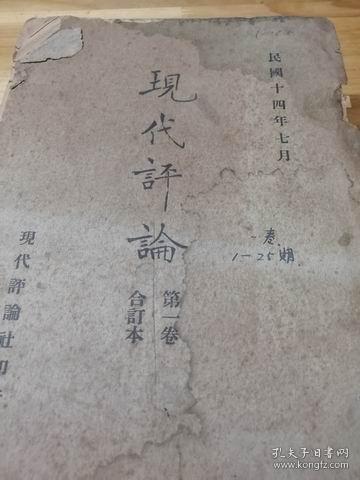 民國十四年七月
現代評論
第一卷
合訂本
一卷
1-25期
現代評論社印
孔夫子旧书网